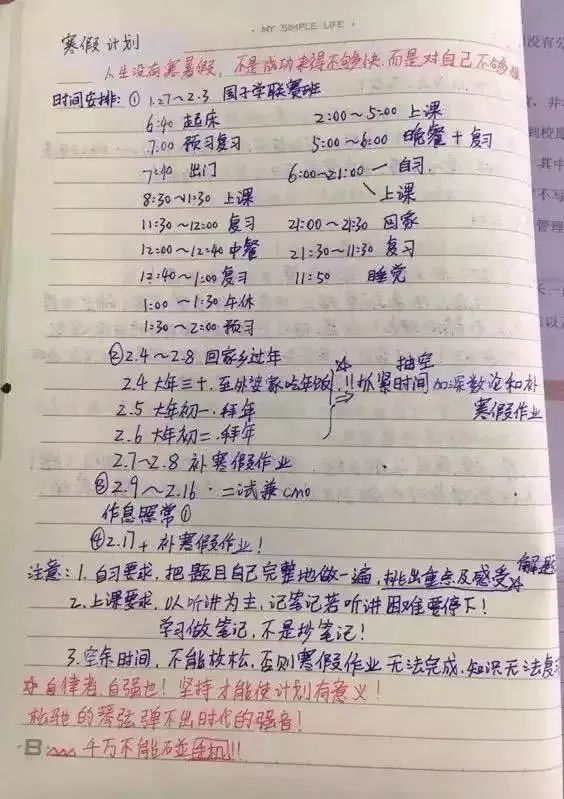 · MY SIMPLE LIFE ·
寒假计划
人生没有寒暑假，不是成功来得不够快，而是对自己不够狠
时间安排：① 1.27～2.3 国子学联赛班
6:40 起床 2:00～5:00 上课
7:00 预习复习 5:00～6:00 晚餐+复习
7:40 出门 6:00~21:00 — 自习.
8:30~11:30 上课 \ 上课
11:30～12:00 复习 21:00~21:30 回家
12:00～12:40 中餐 21:30~11:30 复习
12:40～1:00 复习 11:50 睡觉
1:00 ~1:30 午休
1:30～2:00 预习
② 2.4～2.8 回家乡过年 ☆ 抽空
2.4 大年三十，至外婆家吃年饭 !! 抓紧时间加深数论和补
2.5 大年初一，拜年 ⇒ 寒假作业
2.6 大年初二，拜年
2.7～2.8 补寒假作业
③ 2.9～2.16 · 二试兼cmo
作息照常①
④ 2.17+ 补寒假作业！
注意：1. 自习要求，把题目自己完整地做一遍，挑出重点及感受☆ 解题
2. 上课要求，以听讲为主，记笔记若听讲困难要停下！
学习做笔记，不是抄笔记！
3. 空余时间，不能放松，否则寒假作业无法完成，知识无法复
☆ 自律者，自强也！坚持才能使计划有意义！
松弛的琴弦弹不出时代的强音！
千万不能碰手机!!
没有分